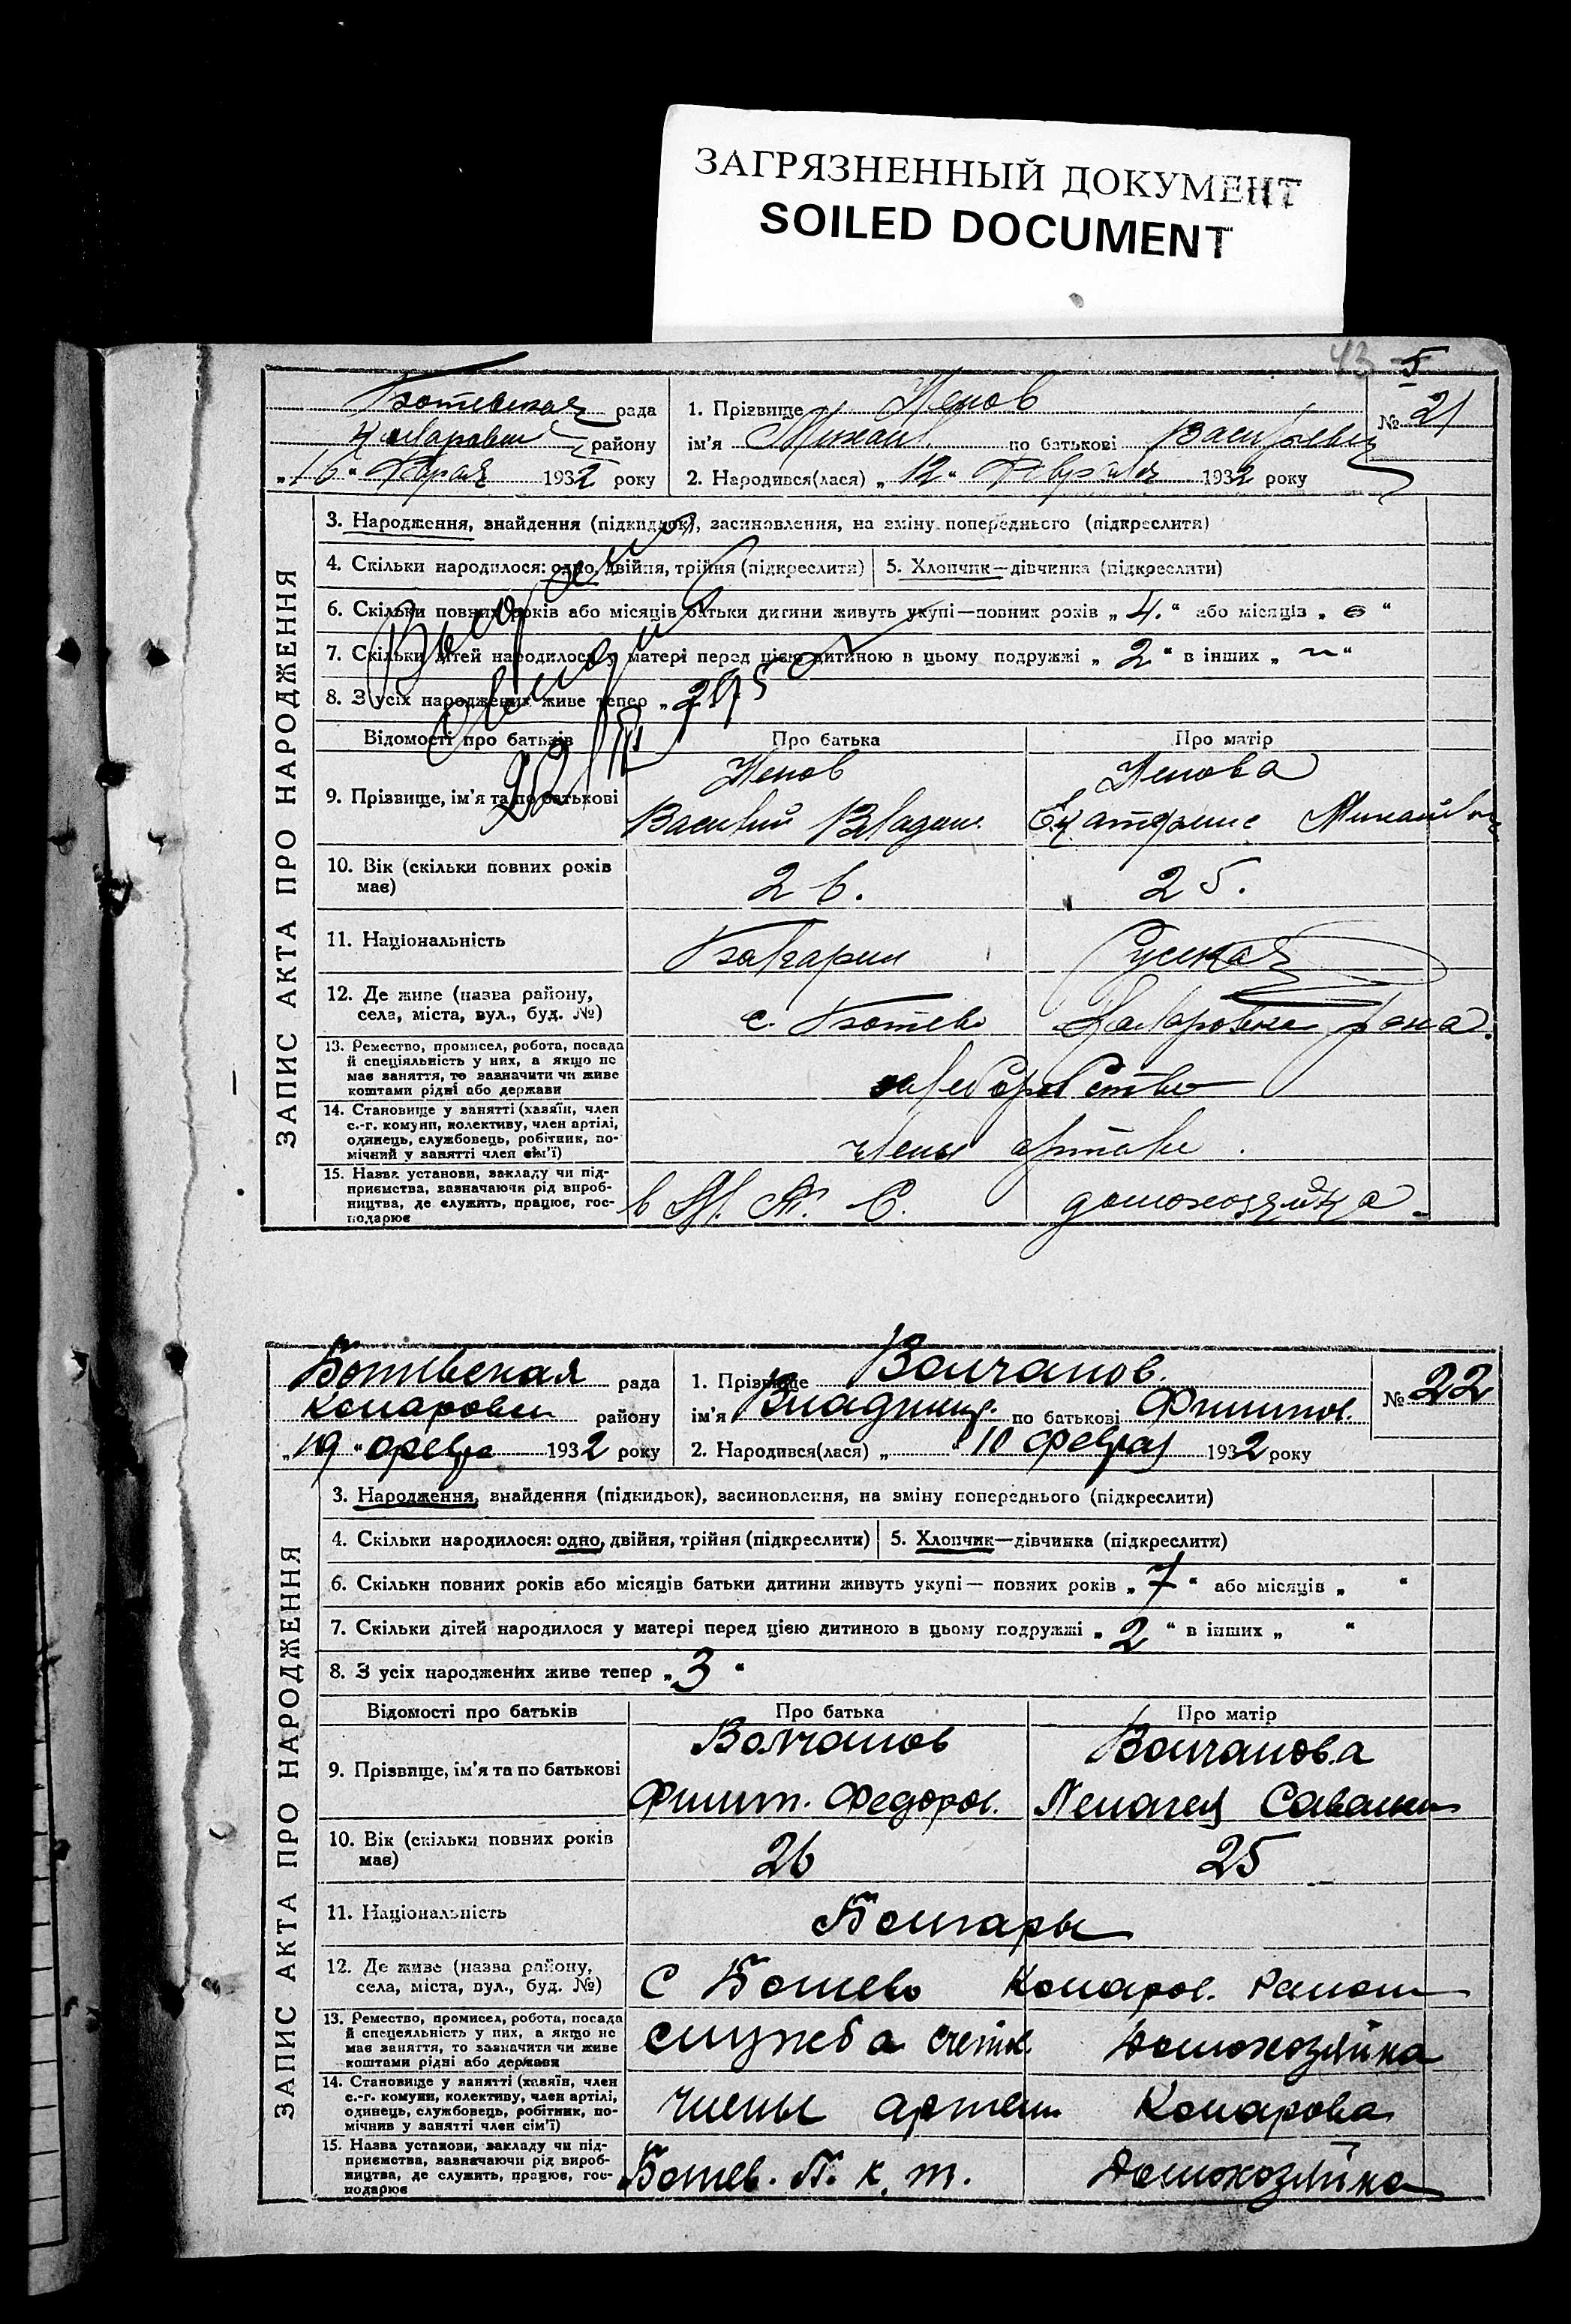 ЗАГРЯЗНЕННЫЙ ДОКУМЕНТ
SOILED DOCUMENT
43 5
Ботевская рада
району
"16" 1932 року
1. Прізвище Ценов
№ 21
ім'я Михаил по батькові Васильевич
2. Народився(лася) "12" Февраля 1932 року
ЗАПИС АКТА ПРО НАРОДЖЕННЯ
3. Народження, знайдення (підкидьок), засиновлення, на зміну попереднього (підкреслити)
4. Скільки народилося: одно, двійня, трійня (підкреслити)
5. Хлопчик—дівчинка (підкреслити)
6. Скільки повних років або місяців батьки дитини живуть укупі—повних років „4.“ або місяців „ “
7. Скільки дітей народилося у матері перед цією дитиною в цьому подружжі „2“ в інших „~“
8. З усіх народжених живе тепер „
Відомості про батьків
Про батька
Про матір
9. Прізвище, ім'я та по батькові
Ценов
Ценова
Василий
10. Вік (скільки повних років має)
26.
25.
11. Національність
Болгарин
Русская
12. Де живе (назва району, села, міста, вул., буд. №)
с. Ботево
13. Ремество, промисел, робота, посада
й спеціяльність у них, а якщо не
має заняття, то зазначити чи живе
коштами рідні або держави
14. Становище у занятті (хазяїн, член
с.-г. комуни, колективу, член артілі,
одинець, службовець, робітник, по-
мічний у занятті член сім'ї)
члены артели
15. Назва установи, закладу чи під-
приємства, зазначаючи рід вироб-
ництва, де служить, працює, гос-
подарює
в М. Т. С.
домохозяйка
Ботевская рада
Коларовск району
"19" февр 1932 року
1. Прізвище Волчанов.
№ 22
ім'я Владимир. по батькові Филипов.
2. Народився(лася) „ “ 10 Феврал 1932 року
ЗАПИС АКТА ПРО НАРОДЖЕННЯ
3. Народження, знайдення (підкидьок), засиновлення, на зміну попереднього (підкреслити)
4. Скільки народилося: одно, двійня, трійня (підкреслити)
5. Хлопчик—дівчинка (підкреслити)
6. Скільки повних років або місяців батьки дитини живуть укупі— повних років „7“ або місяців „ “
7. Скільки дітей народилося у матері перед цією дитиною в цьому подружжі „2“ в інших „ “
8. З усіх народжених живе тепер „3“
Відомості про батьків
Про батька
Про матір
9. Прізвище, ім'я та по батькові
Волчанов
Волчанова
Филип. Федоров.
Пелагея
10. Вік (скільки повних років має)
26
25
11. Національність
Болгары
12. Де живе (назва району, села, міста, вул., буд. №)
С Ботево Коларов. Район
13. Ремество, промисел, робота, посада
й спеціяльність у них, а якщо не
має заняття, то зазначити чи живе
коштами рідні або держави
служба
Домохозяйка
14. Становище у занятті (хазяїн, член
с.-г. комуни, колективу, член артілі,
одинець, службовець, робітник, по-
мічник у занятті член сім'ї)
члены артели Коларова
15. Назва установи, закладу чи під-
приємства, зазначаючи рід вироб-
ництва, де служить, працює, гос-
подарює
Ботев. П. К. т.
Домохозяйка